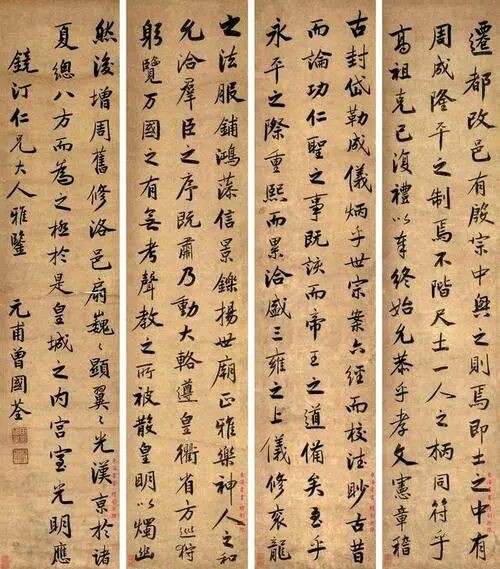 遷都改邑有殷宗中興之則焉即土之中有
周成隆平之制焉不階尺土一人之柄同符乎
高祖克己復禮以奉終始允恭乎孝文憲章稽
古封岱勒成儀炳乎世宗案六經而校法眇古昔
而論功仁聖之事既該而帝王之道備矣至乎
永平之際重熙而累洽盛三雍之上儀修袞龍
之法服鋪鴻藻信景鑠揚世廟正雅樂神人之和
允洽羣臣之序既肅乃動大輅遵皇衢省方巡狩
躬覽万國之有無考聲教之所被散皇明以燭幽
然後增周舊修洛邑扇巍〻顯翼〻光漢京於諸
夏總八方而為之極於是皇城之內宮室光明應
鏡汀仁兄大人雅鑒
元甫曾國荃